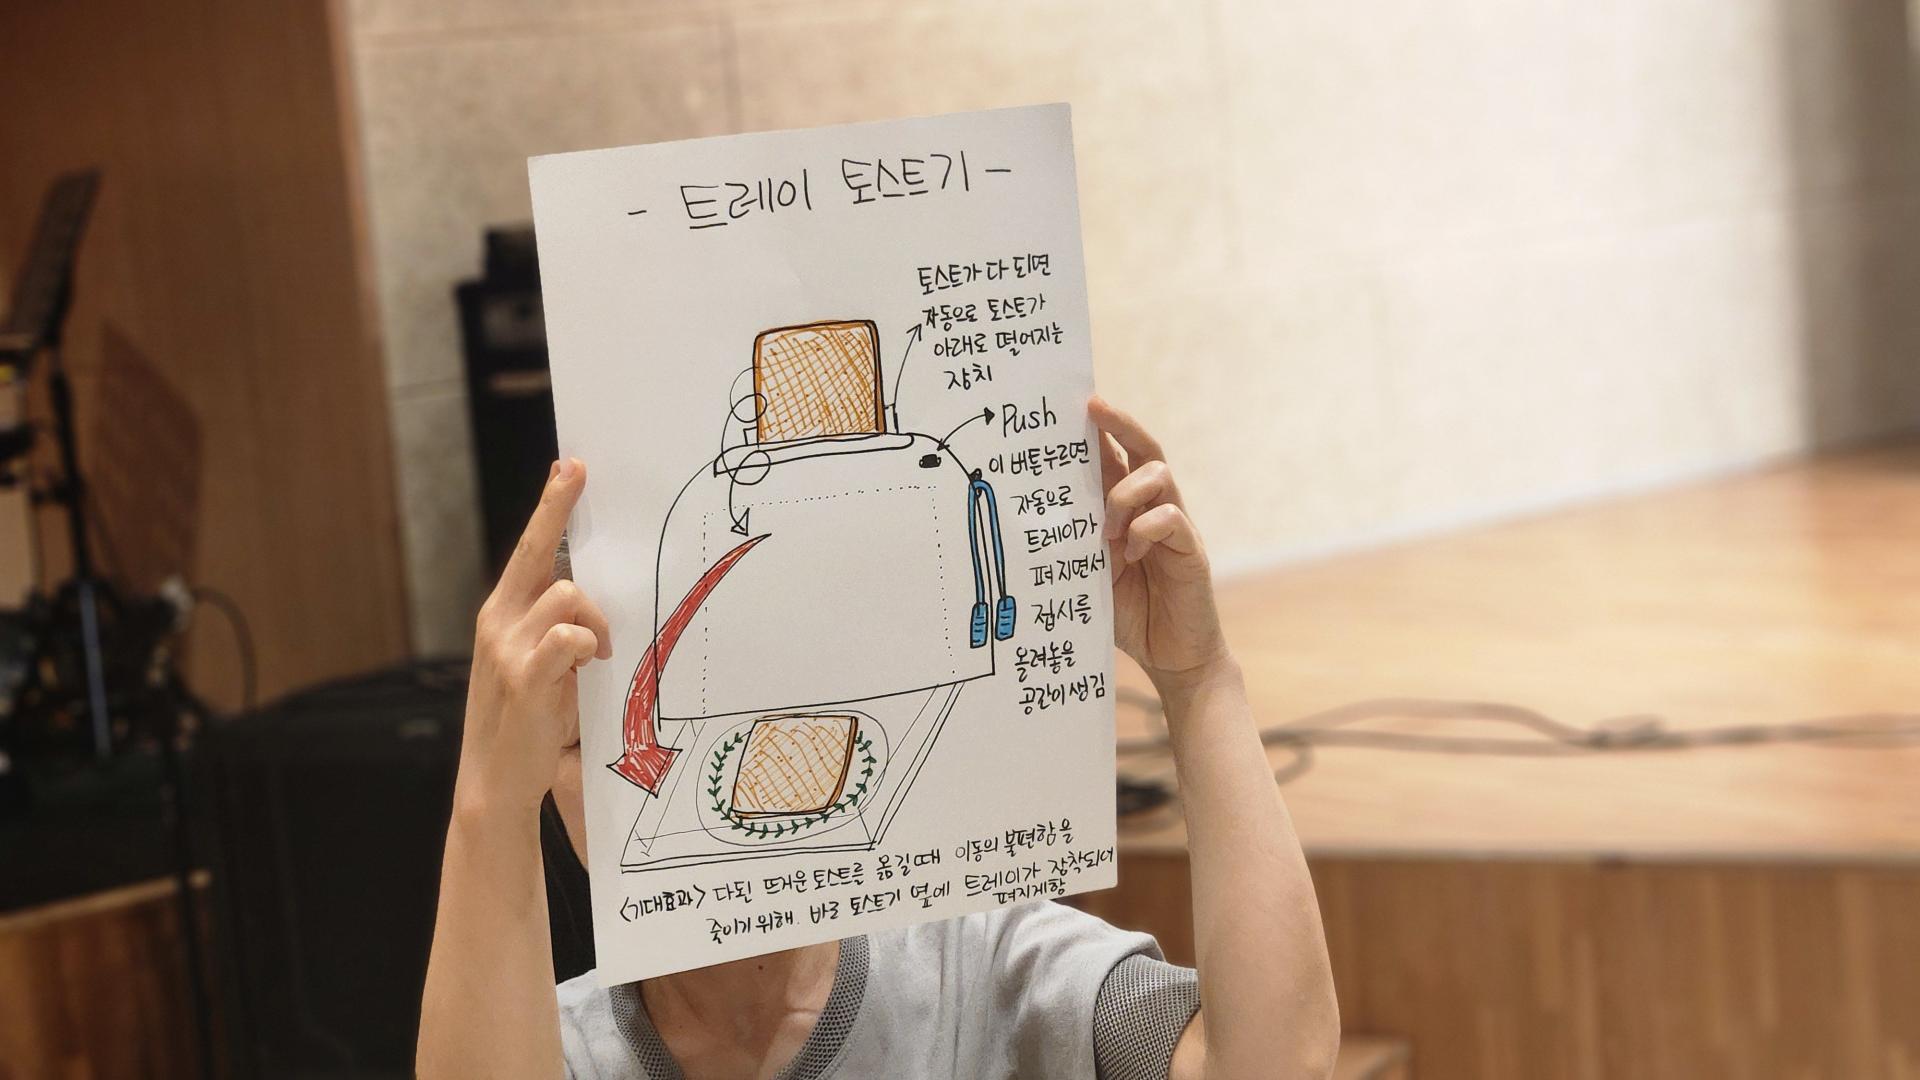 - 트레이 토스트기 -
토스트가 다 되면
자동으로 토스트가
아래로 떨어지는
장치
Push
이 버튼누르면
자동으로
트레이가
펴지면서
접시를
올려놓을
공간이 생김
<기대효과> 다된 뜨거운 토스트를 옮길때 이동의 불편함을
줄이기 위해. 바로 토스트기 옆에 트레이가 장착되어
펴지게함